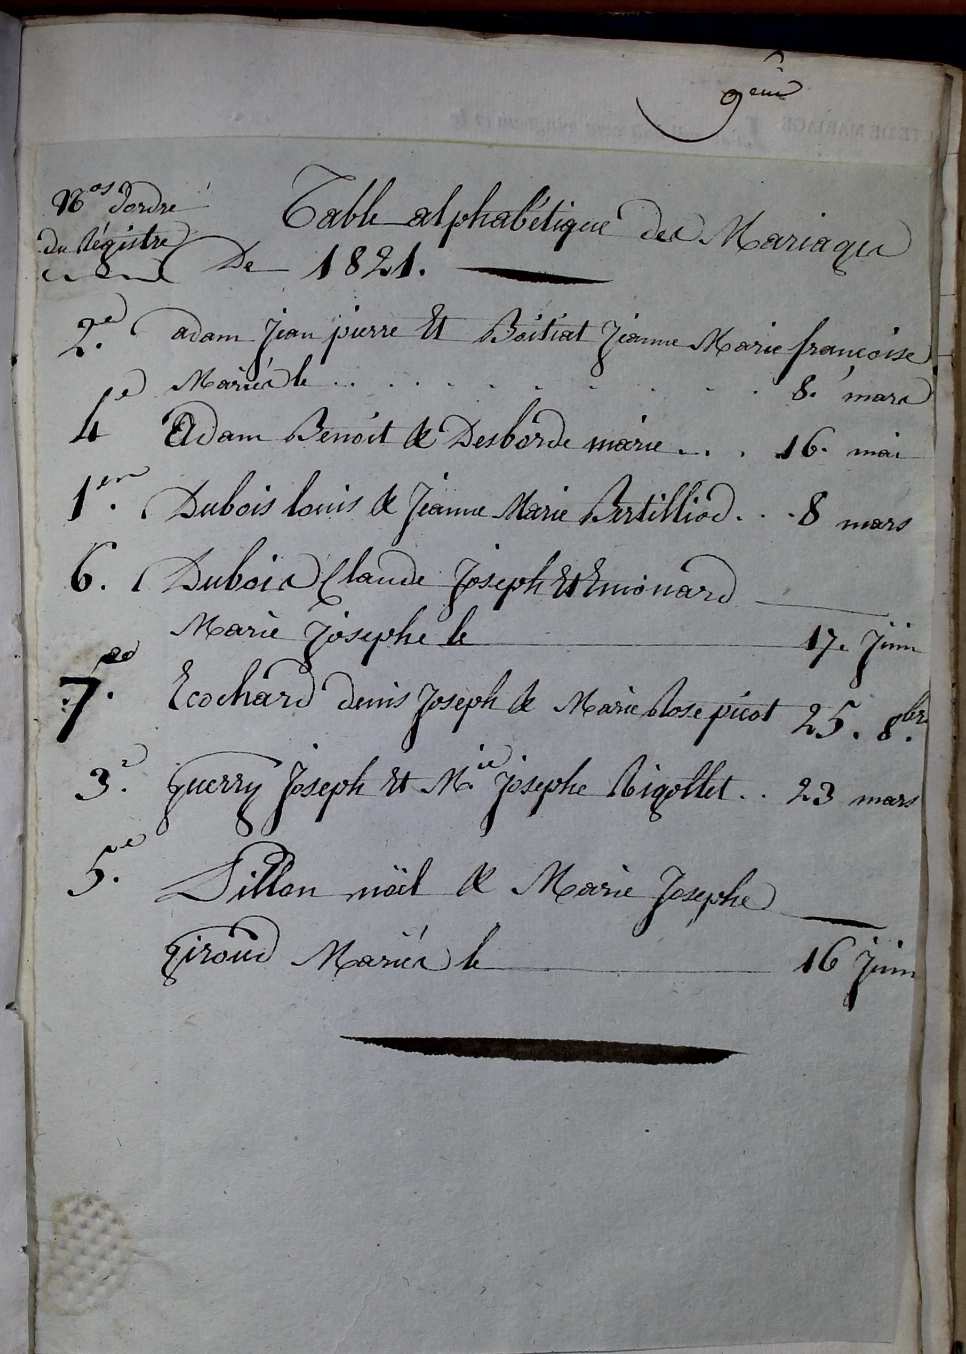 9eme
Nos d'ordre
du Régistre
Table alphabétique des Mariages
De 1821.
2e. adam Jean pierre Et Boitiat Jeanne Marie françoise
Mariés le . . . . . . . . . . 8. mars
4e Adam Benoit & Desborde marie . . . 16. mai
1er. Dubois louis & Jeanne Marie Bertilliod . . . 8 mars
6. Dubois Claude Joseph Et Emonard
Marie Josephe le 17. Juin
7. Ecochard denis Joseph & Marie Rose picot 25. 8bre.
3e. Guerry Joseph Et Mie Josephe Rigollet . . 23 mars
5e. Pillon noël & Marie Josephe
Giroud Mariés le 16 Juin